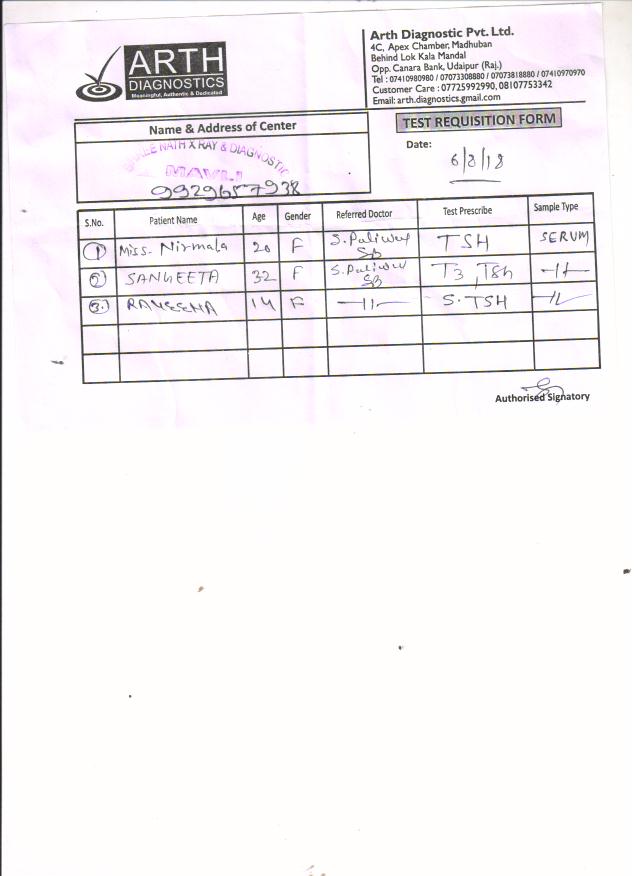 ARTH
DIAGNOSTICS
Meaningful, Authentic & Dedicated
Arth Diagnostic Pvt. Ltd.
4C, Apex Chamber, Madhuban
Behind Lok Kala Mandal
Opp. Canara Bank, Udaipur (Raj.)
Tel : 07410980980 / 07073308880 / 07073818880 / 07410970970
Customer Care : 07725992990, 08107753342
Email: arth.diagnostics.gmail.com
Name & Address of Center
NATH X RAY & DIAGNOSTIC
MAVLI
9929657938
TEST REQUISITION FORM
Date:
6/8/18
S.No. Patient Name Age Gender Referred Doctor Test Prescribe Sample Type
1 Miss. Nirmala 20 F S. Paliwal TSH SERUM
2 SANGEETA 32 F S. Paliwal T3, TSh -11-
3. 14 F -11- S.TSH -11-
Authorised Signatory